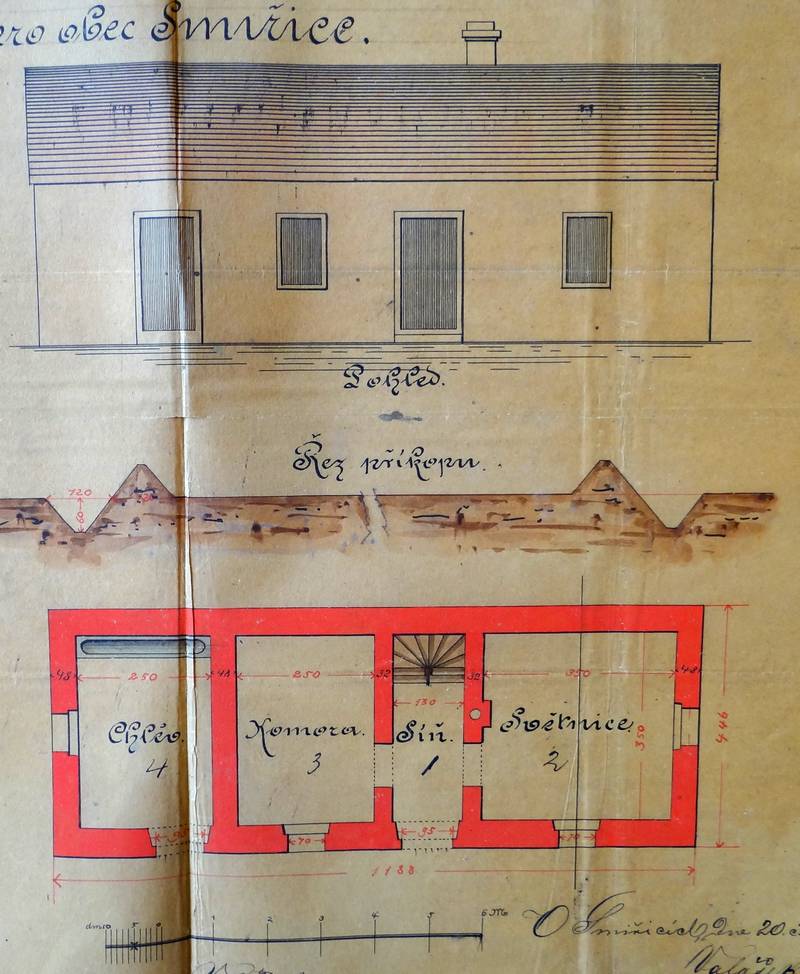 pro obec Smiřice.
Pohled.
Řez příkopu.
120
80
48 250 48 250 32 32 350 48
130
Chlév. Komora. Síň. Světnice.
4 3 1 2
350
446
95 70 95 70
1188
dm 10 5 0 1 2 3 4 5 6 M
V Smiřicích, dne 20.